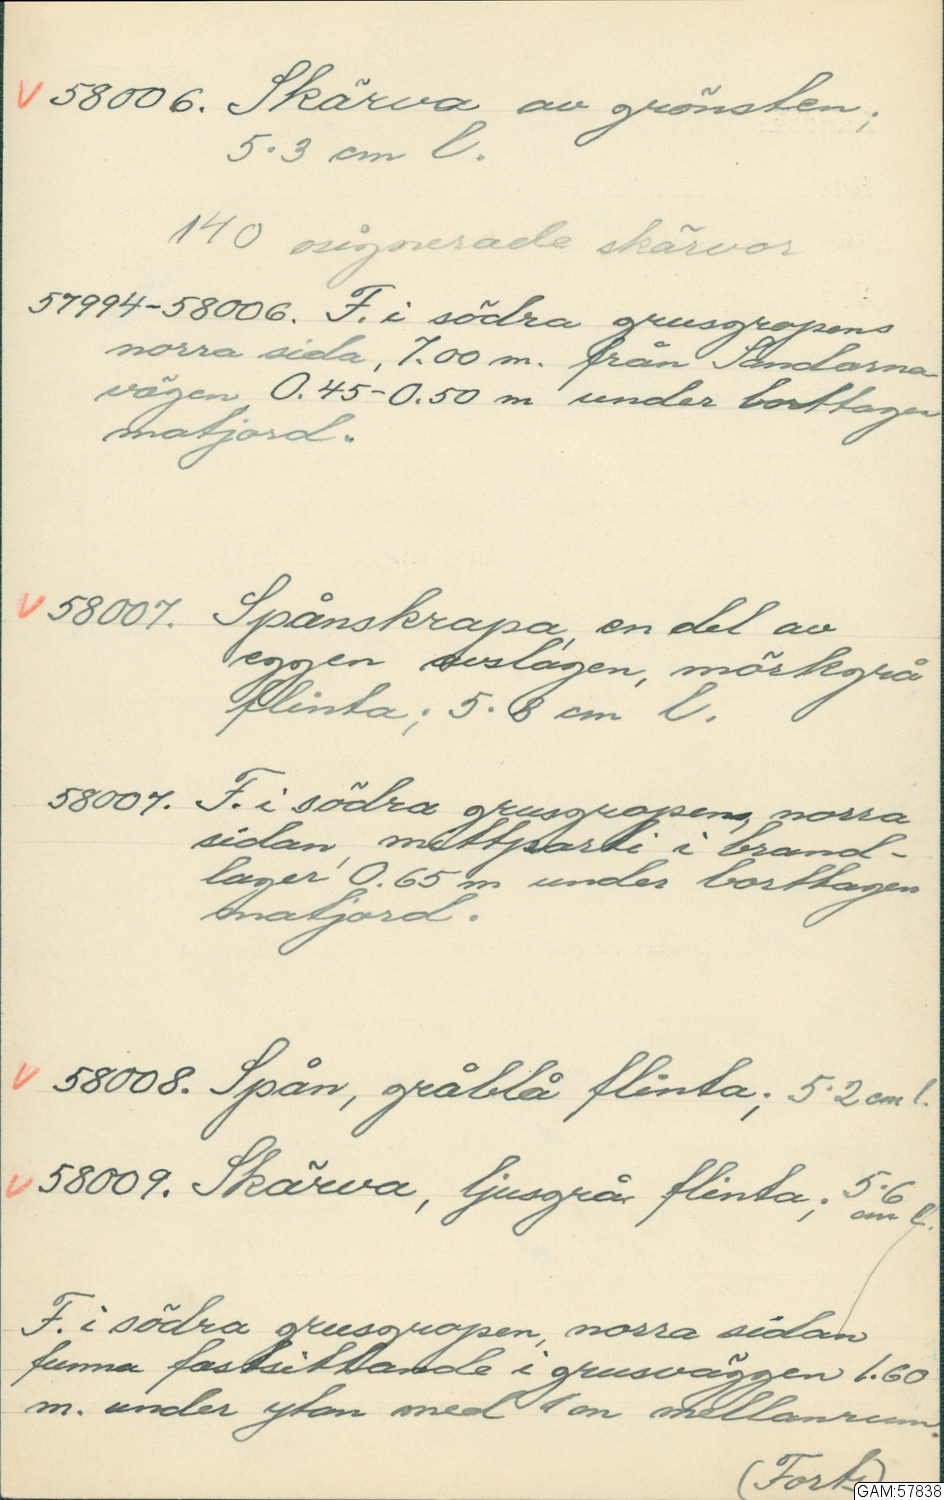 V 58006. Skärva av grönsten;
5.3 cm l.
140 osignerade skärvor
57994-58006. F. i södra grusgropens
norra sida, 7.00 m. från Sandarna-
vägen 0.45-0.50 m under borttagen
matjord.
V 58007. Spånskrapa, en del av
eggen avslagen, mörkgrå
flinta; 5.8 cm l.
58007. F. i södra grusgropens norra
sidan, mittparti i brand-
lager 0.65 m under borttagen
matjord.
V 58008. Spån, gråblå flinta; 5.2 cm l.
V 58009. Skärva, ljusgrå flinta; 5.6
cm l.
F. i södra grusgropen, norra sidan
funna fastsittande i grusväggen 1.60
m. under ytan med 1 cm mellanrum.
(Forts)
GAM:57838